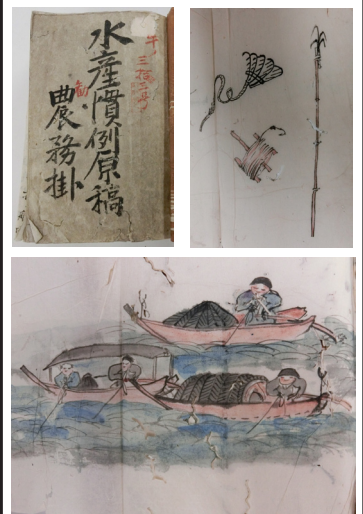 水産慣例原稿
農務掛